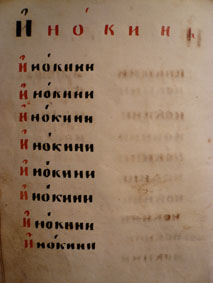 И́ но́кини
И́ но́кини
И́ но́кини
И́ но́кини
И́ но́кини
И́ но́кини
И́ но́кини
И́ но́кини
И́ но́кини